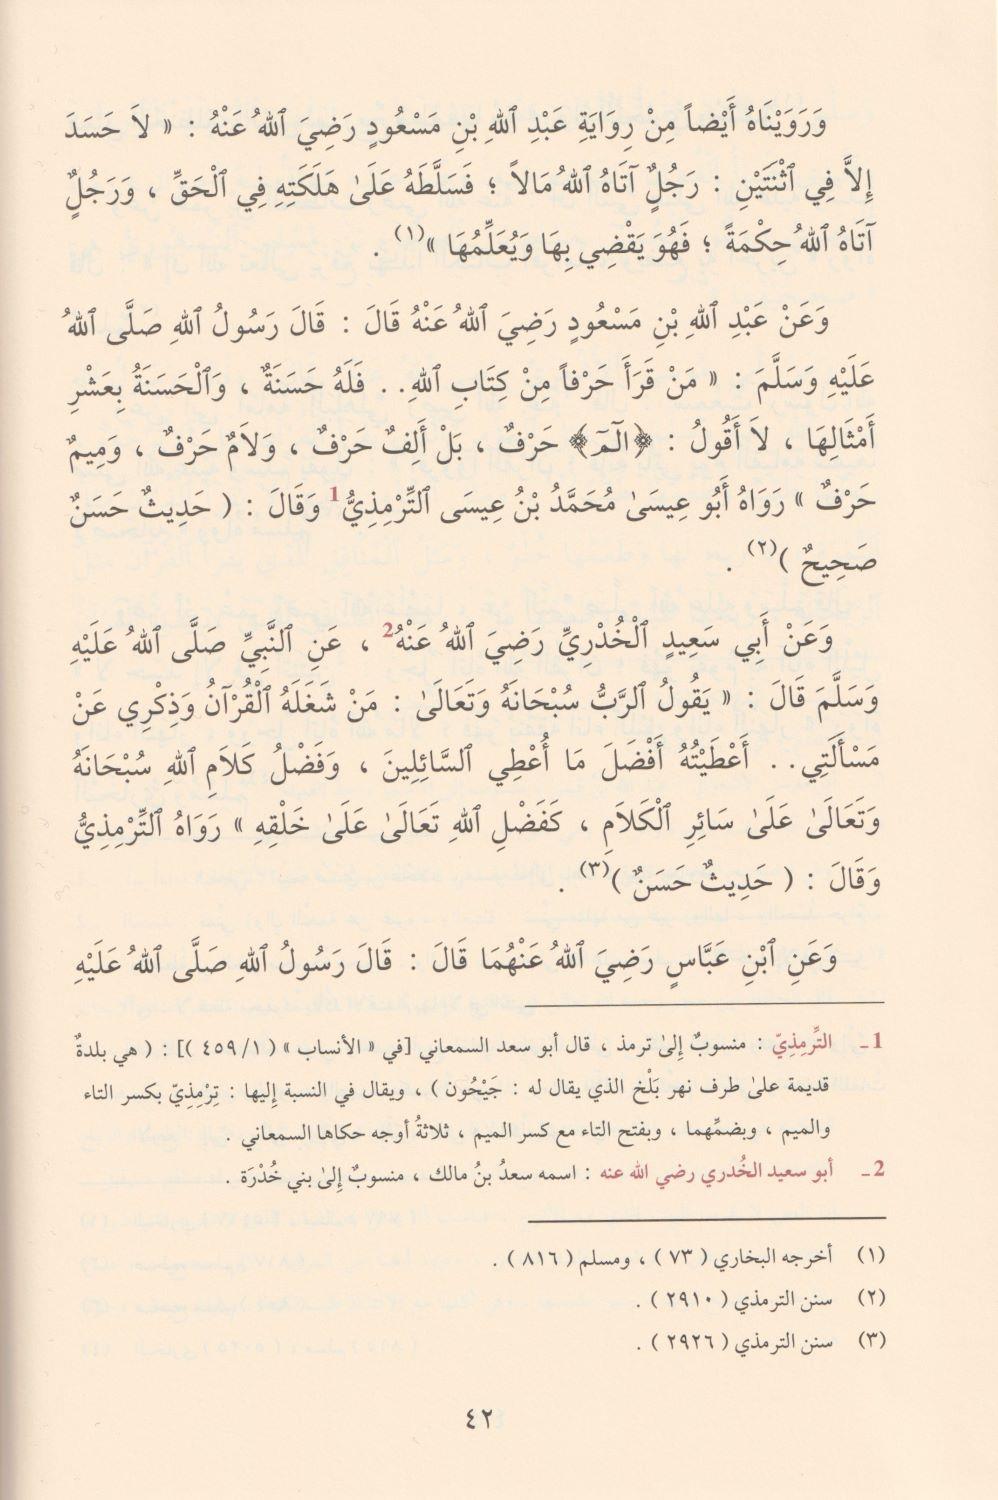 وَرَوَيْنَاهُ أَيْضاً مِنْ رِوَايَةِ عَبْدِ ٱللهِ بْنِ مَسْعُودٍ رَضِيَ ٱللهُ عَنْهُ : « لاَ حَسَدَ
إِلاَّ فِي ٱثْنَتَيْنِ : رَجُلٌ آتَاهُ ٱللهُ مَالاً ؛ فَسَلَّطَهُ عَلَىٰ هَلَكَتِهِ فِي ٱلْحَقِّ ، وَرَجُلٌ
آتَاهُ ٱللهُ حِكْمَةً ؛ فَهُوَ يَقْضِي بِهَا وَيُعَلِّمُهَا »(١) .
وَعَنْ عَبْدِ ٱللهِ بْنِ مَسْعُودٍ رَضِيَ ٱللهُ عَنْهُ قَالَ : قَالَ رَسُولُ ٱللهِ صَلَّى ٱللهُ
عَلَيْهِ وَسَلَّمَ : « مَنْ قَرَأَ حَرْفاً مِنْ كِتَابِ ٱللهِ.. فَلَهُ حَسَنَةٌ ، وَٱلْحَسَنَةُ بِعَشْرِ
أَمْثَالِهَا ، لاَ أَقُولُ : ﴿الٓمٓ﴾ حَرْفٌ ، بَلْ أَلِفٌ حَرْفٌ ، وَلاَمٌ حَرْفٌ ، وَمِيمٌ
حَرْفٌ » رَوَاهُ أَبُو عِيسَىٰ مُحَمَّدُ بْنُ عِيسَى ٱلتِّرْمِذِيُّ1 وَقَالَ : ( حَدِيثٌ حَسَنٌ
صَحِيحٌ )(٢) .
وَعَنْ أَبِي سَعِيدٍ ٱلْخُدْرِيِّ رَضِيَ ٱللهُ عَنْهُ2 ، عَنِ ٱلنَّبِيِّ صَلَّى ٱللهُ عَلَيْهِ
وَسَلَّمَ قَالَ : « يَقُولُ ٱلرَّبُّ سُبْحَانَهُ وَتَعَالَىٰ : مَنْ شَغَلَهُ ٱلْقُرْآنُ وَذِكْرِي عَنْ
مَسْأَلَتِي.. أَعْطَيْتُهُ أَفْضَلَ مَا أُعْطِي ٱلسَّائِلِينَ ، وَفَضْلُ كَلاَمِ ٱللهِ سُبْحَانَهُ
وَتَعَالَىٰ عَلَىٰ سَائِرِ ٱلْكَلاَمِ ، كَفَضْلِ ٱللهِ تَعَالَىٰ عَلَىٰ خَلْقِهِ » رَوَاهُ ٱلتِّرْمِذِيُّ
وَقَالَ : ( حَدِيثٌ حَسَنٌ )(٣) .
وَعَنِ ٱبْنِ عَبَّاسٍ رَضِيَ ٱللهُ عَنْهُمَا قَالَ : قَالَ رَسُولُ ٱللهِ صَلَّى ٱللهُ عَلَيْهِ
1ـ التِّرمِذِيّ : منسوبٌ إِلىٰ ترمذ ، قال أبو سعد السمعاني [في « الأنساب » ( ١/ ٤٥٩ )] : ( هي بلدةٌ
قديمة علىٰ طرف نهر بَلْخ الذي يقال له : جَيْحُون ) ، ويقال في النسبة إِليها : تِرْمِذِيّ بكسر التاء
والميم ، وبضمِّهما ، وبفتح التاء مع كسر الميم ، ثلاثةُ أوجه حكاها السمعاني .
2ـ أبو سعيد الخُدري رضي الله عنه : اسمه سعدُ بنُ مالك ، منسوبٌ إِلىٰ بني خُدْرَة .
(١) أخرجه البخاري ( ٧٣ ) ، ومسلم ( ٨١٦ ) .
(٢) سنن الترمذي ( ٢٩١٠ ) .
(٣) سنن الترمذي ( ٢٩٢٦ ) .
٤٢